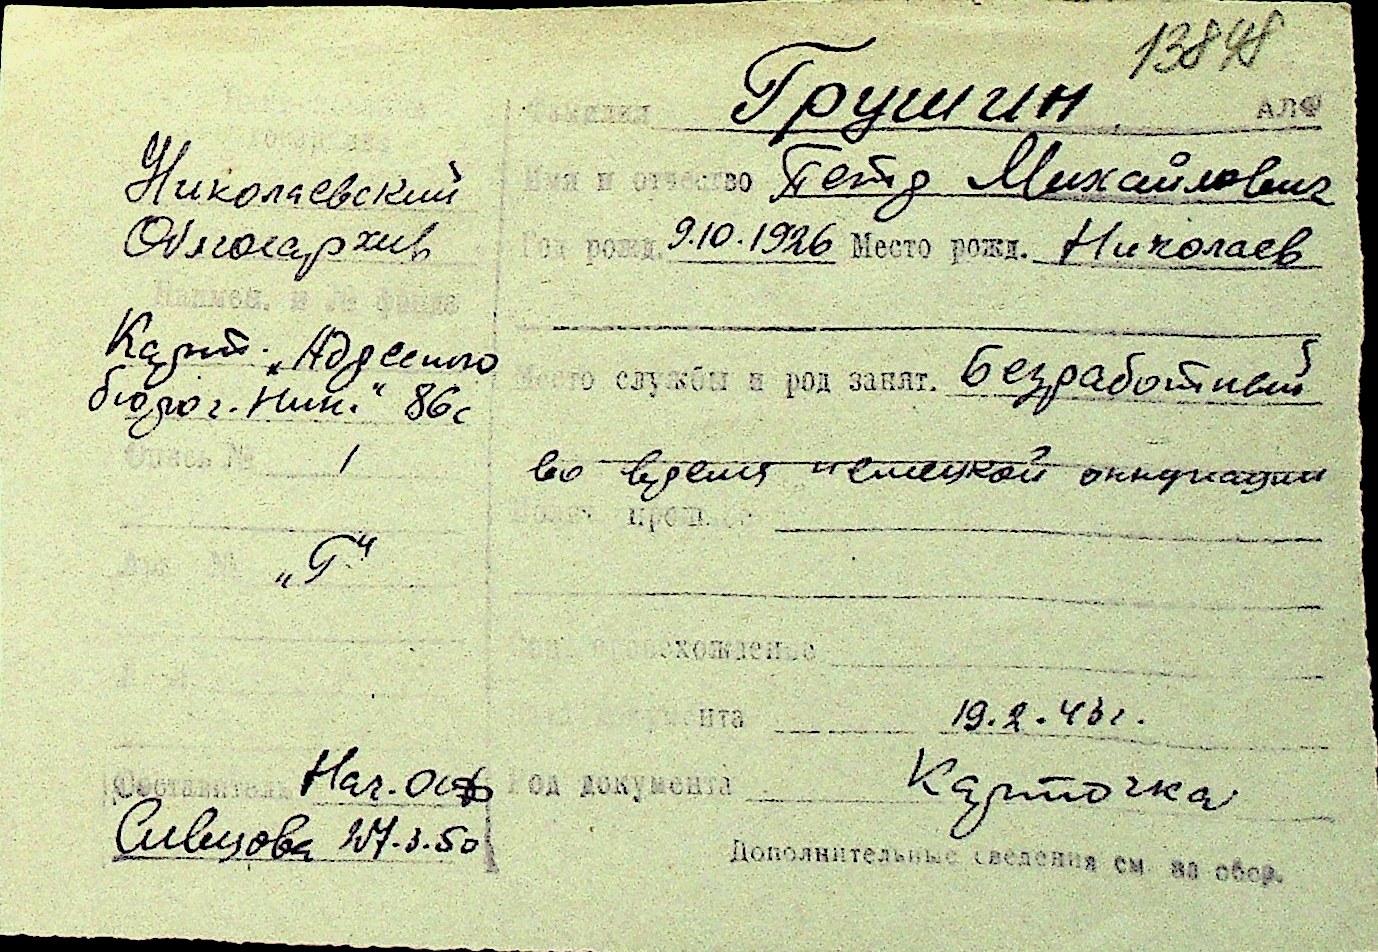 13848
Фамилия Грушин АЛФ
Имя и отчество Петр Михайлович
Год рожд. 9.10.1926 Место рожд. Николаев
Место службы и род занят. Безработный
во время немецкой оккупации
Полит. прошлое
Соц. происхождение
Дата документа 19.2.43 г.
Род документа Карточка
Дополнительные сведения см. на обор.
Николаевский
Облгосархив
Наимен. и № фонда
Карт. „Адресного
бюро г. Ник.“ 86с
Опись № 1
Арх. № „Г“
Составитель Нач. ОСФ
Сивцова 27.3.50